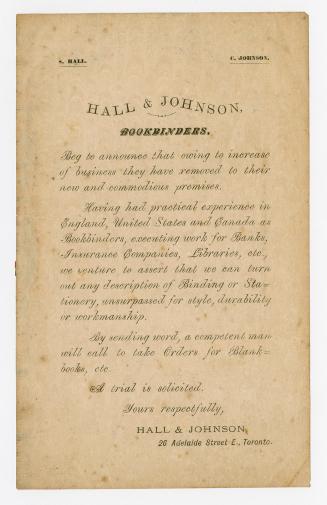 S. HALL. C. JOHNSON.
HALL & JOHNSON,
BOOKBINDERS.
Beg to announce that owing to increase
of business they have removed to their
new and commodious premises.
Having had practical experience in
England, United States and Canada as
Bookbinders, executing work for Banks,
Insurance Companies, Libraries, etc.,
we venture to assert that we can turn
out any description of Binding or Sta-
tionery, unsurpassed for style, durability
or workmanship.
By sending word, a competent man
will call to take Orders for Blank=
books, etc.
A trial is solicited.
Yours respectfully,
HALL & JOHNSON,
26 Adelaide Street E., Toronto.